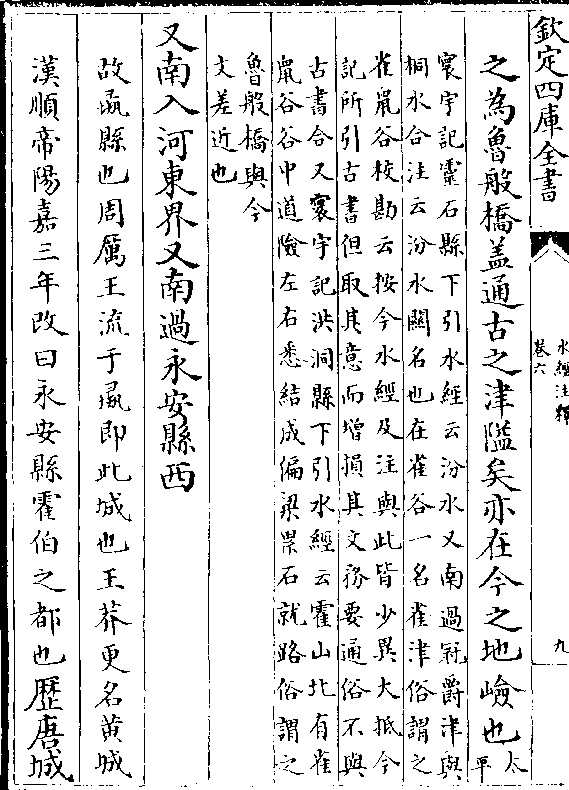 欽定四庫全書
水經注釋
卷六
九
之為魯般橋盖通古之津隘矣亦在今之地嶮也太
平
寰宇記靈石縣下引水經云汾水又南過冠爵津與
桐水合注云汾水關名也在雀谷一名雀津俗謂之
雀鼠谷校勘云按今水經及注與此皆少異大抵今
記所引古書但取其意而增損其文務要通俗不與
古書合又寰宇記洪洞縣下引水經云霍山北有雀
鼠谷谷中道險左右悉結成偏梁累石就路俗謂之
魯般橋與今
文差近也
又南入河東界又南過永安縣西
故彘縣也周厲王流于彘即此城也王莽更名黄城
漢順帝陽嘉三年改曰永安縣霍伯之都也歷唐城